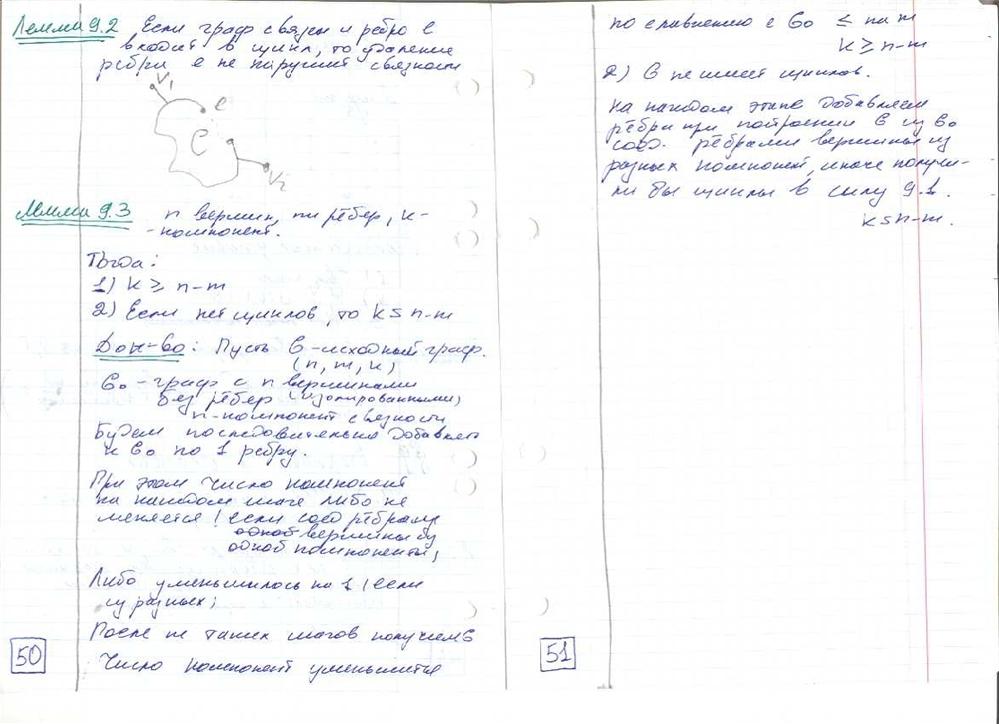 Лемма 9.2 Если граф связен и ребро e
входит в цикл, то удаление
ребра e не нарушит связности
V1
e
C
V2
Лемма 9.3 n вершин, m рёбер, k-
-компонент.
Тогда:
1) k ≥ n-m
2) Если нет циклов, то k ≤ n-m
Док-во: Пусть G-исходный граф.
(n, m, k)
G0 - граф с n вершинами
без рёбер (изолированными)
n-компонент связности
Будем последовательно добавлять
к G0 по 1 ребру.
При этом число компонент
на каждом шаге либо не
меняется (если соед ребром
одной вершины из
одной компоненты,
Либо уменьшилось на 1 (если
из разных;
После m таких шагов получим G
Число компонент уменьшится
50
по сравнению с G0 ≤ на m
k ≥ n-m
2) G не имеет циклов.
На каждом этапе добавляем
рёбра при построении G из G0
соед. рёбрами вершины из
разных компонент, иначе получи-
ли бы циклы в силу 9.1.
k ≤ n-m.
51